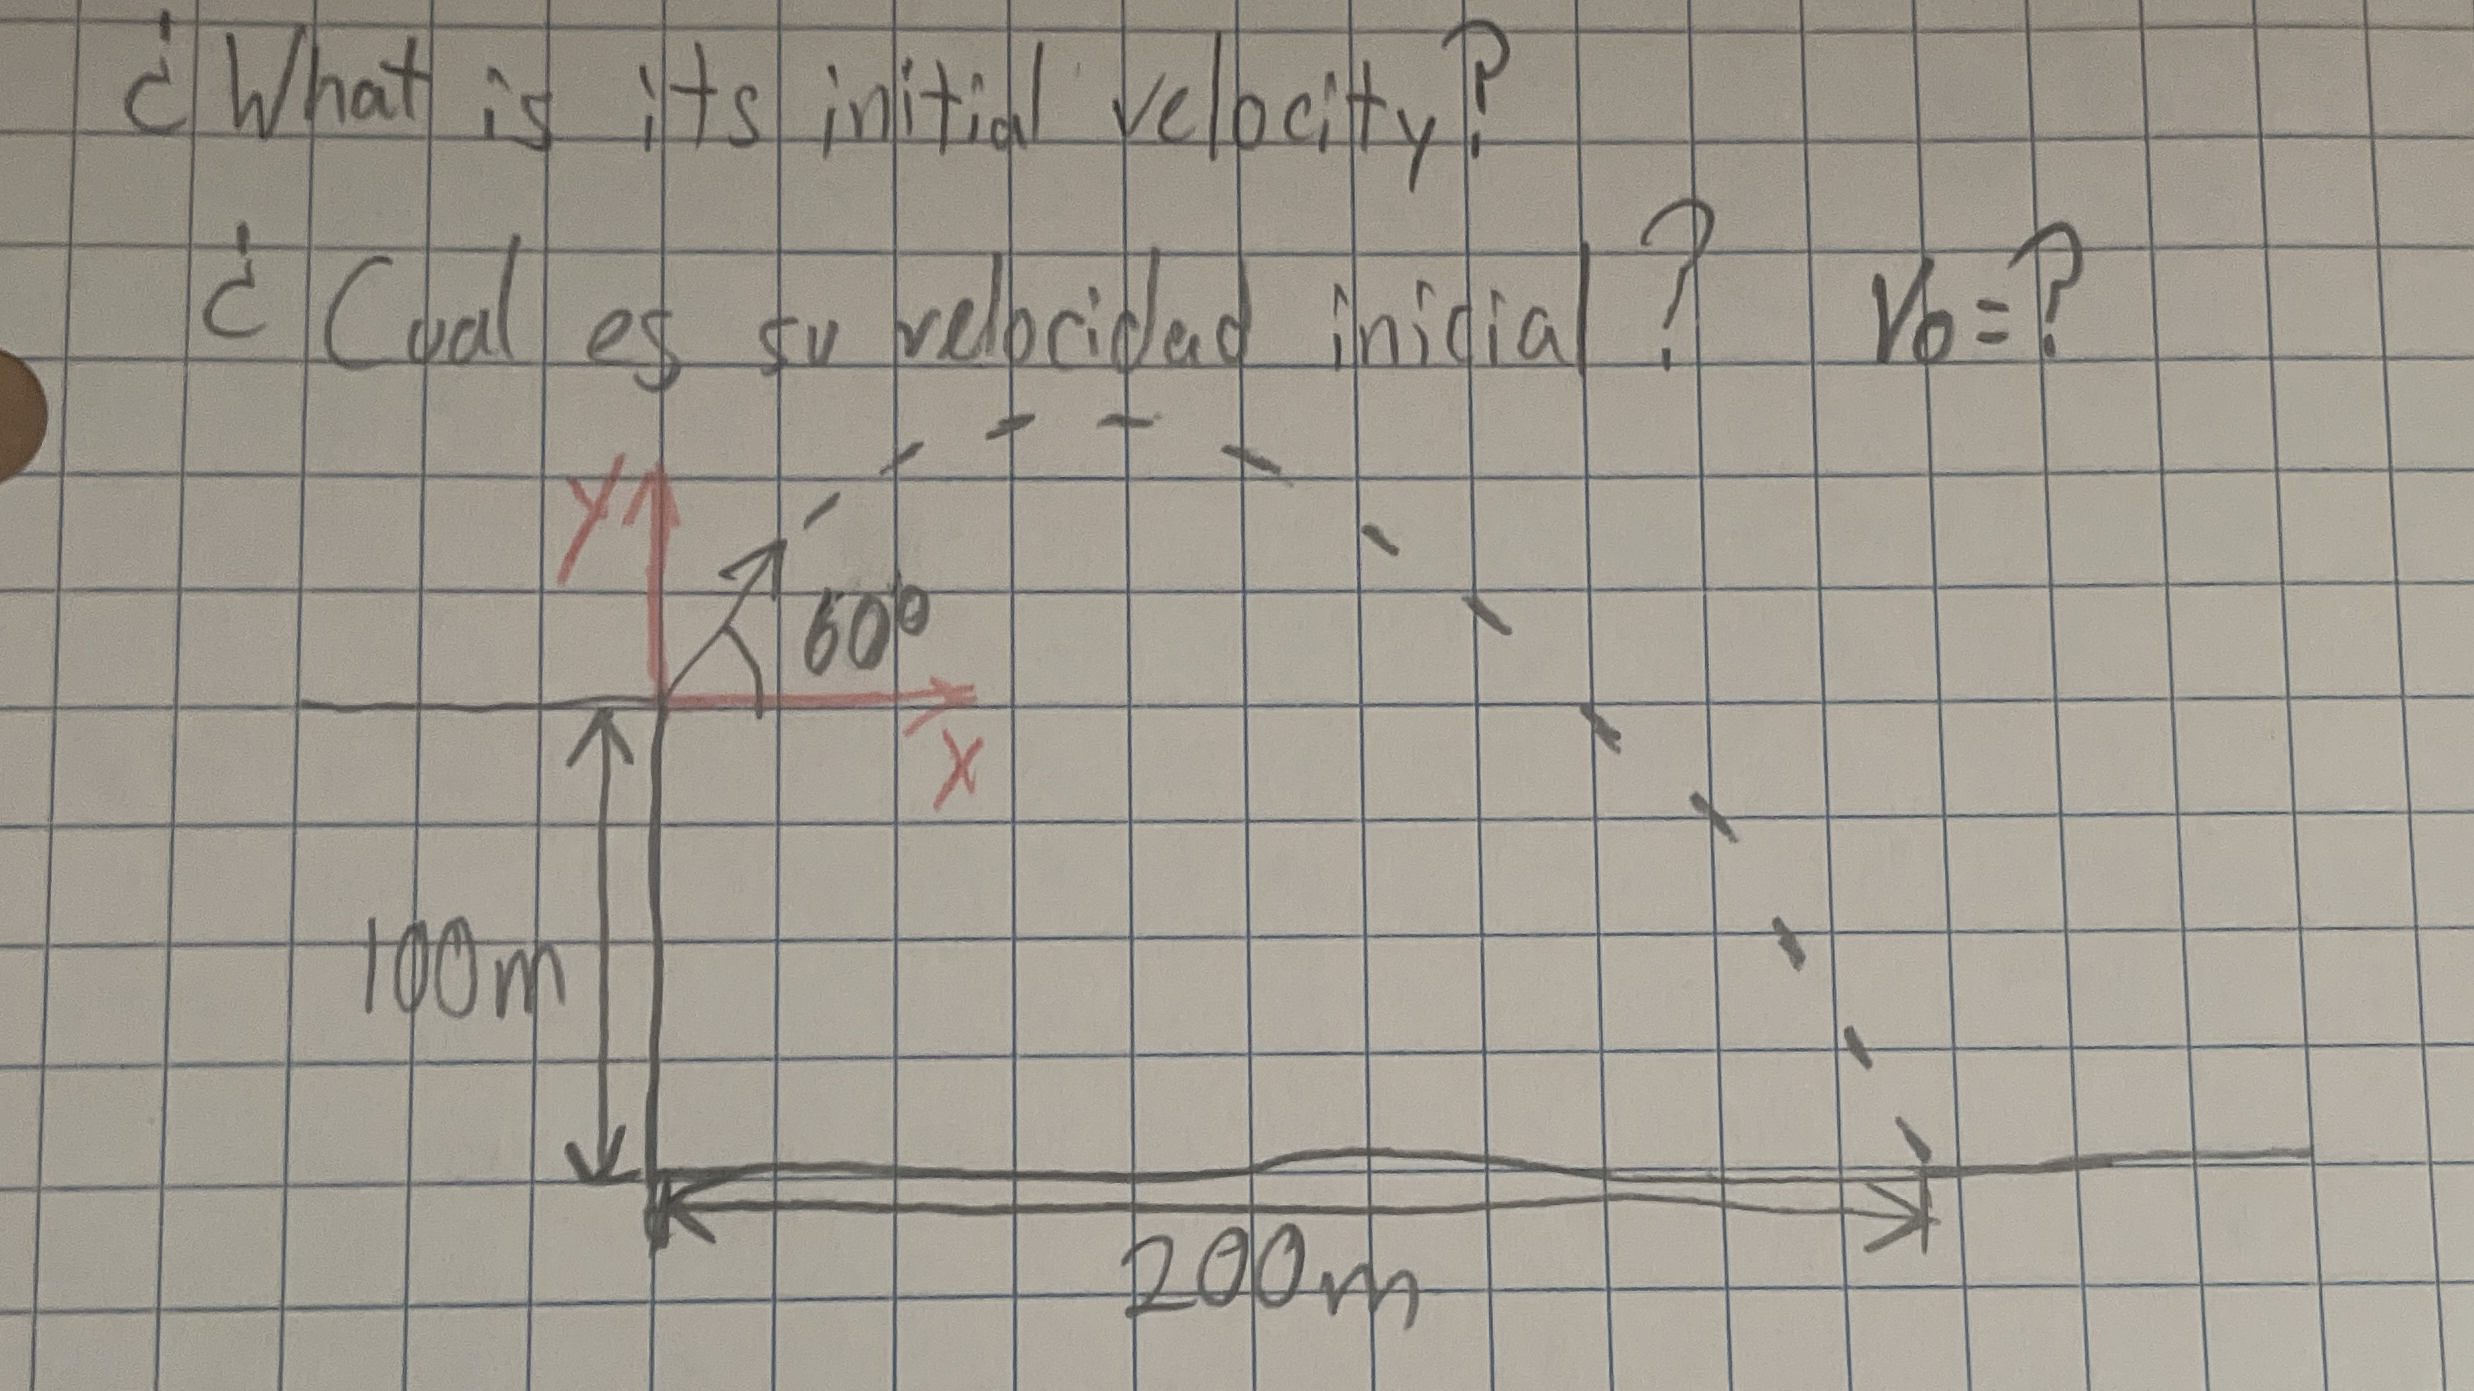 ¿What is its initial velocity?
¿Cual es su velocidad inicial? Vo=?
y
60°
x
100m
200m